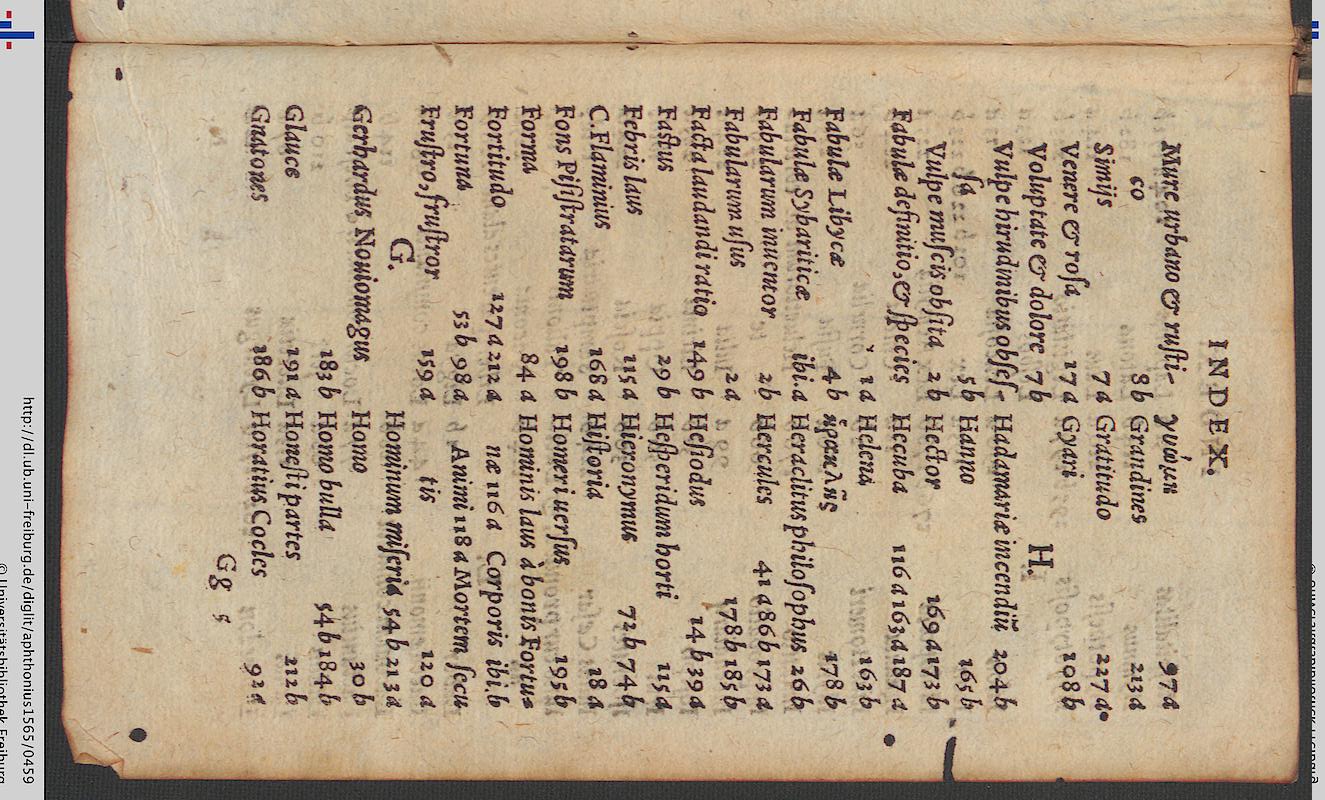 INDEX.
Mure urbano & rusti-
co 8 b
Simijs 7 a
Venere & rosa 17 a
Voluptate & dolore 7 b
Vulpe hirudinibus obses-
sa 5 b
Vulpe muscis obsita 2 b
Fabulæ definitio, & species
1 a
Fabulæ Libycæ 4 b
Fabulæ Sybariticæ ibi. a
Fabularum inuentor 2 b
Fabularum usus 2 a
Facta laudandi ratio 149 b
Fastus 29 b
Febris laus 115 a
C. Flaminius 168 a
Fons Pisistratarum 198 b
Forma 84 a
Fortitudo 127 a 212 a
Fortuna 53 b 98 a
Frustro, frustror 159 a
G.
Gerhardus Nouiomagus
183 b
Glauce 191 a
Gnatones 186 b
γνώμη 97 a
Grandines 213 a
Gratitudo 227 a
Gyari 108 b
H.
Hadamariæ incendiũ 204 b
Hanno 165 b
Hector 169 a 173 b
Hecuba 116 a 163 a 187 a
Helena 163 b
ἡρακλῆς 178 b
Heraclitus philosophus 26 b
Hercules 41 a 86 b 173 a
178 b 185 b
Hesiodus 14 b 39 a
Hesperidum horti 115 a
Hieronymus 72 b 74 b
Historia 18 a
Homeri uersus 195 b
Hominis laus à bonis Fortu-
næ 116 a Corporis ibi. b
Animi 118 a Mortem secu
tis 120 a
Hominum miseria 54 b 213 a
Homo 30 b
Homo bulla 54 b 184 b
Honesti partes 212 b
Horatius Cocles 92 a
Gg 5
http://dl.ub.uni-freiburg.de/diglit/aphthonius1565/0459
© Universitätsbibliothek Freiburg